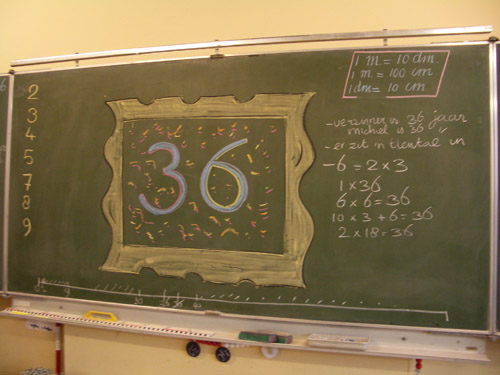 2
3
4
5
7
8
9
36
1 m = 10 dm.
1 m = 100 cm
1 dm = 10 cm
is 36 jaar
michiel is 36 "
- er zit 'n tiental in
- 6 = 2 x 3
1 x 36
6 x 6 = 36
10 x 3 + 6 = 36
2 x 18 = 36